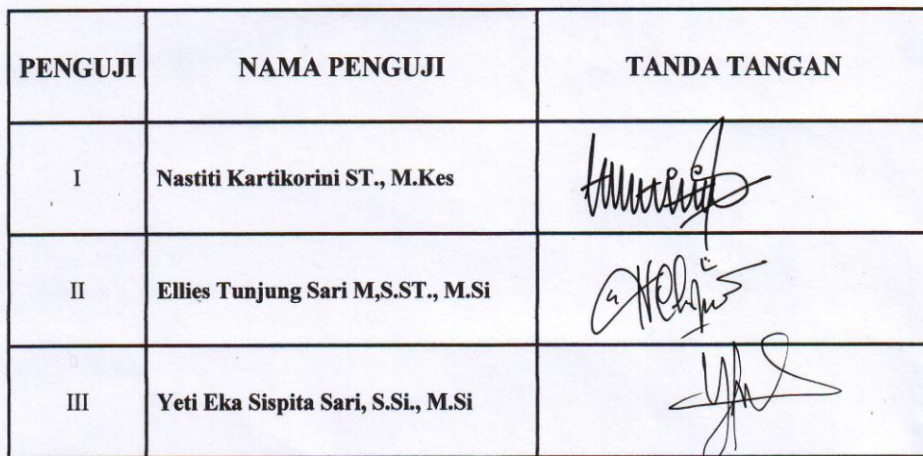 PENGUJI NAMA PENGUJI TANDA TANGAN
I Nastiti Kartikorini ST., M.Kes
II Ellies Tunjung Sari M,S.ST., M.Si
III Yeti Eka Sispita Sari, S.Si., M.Si